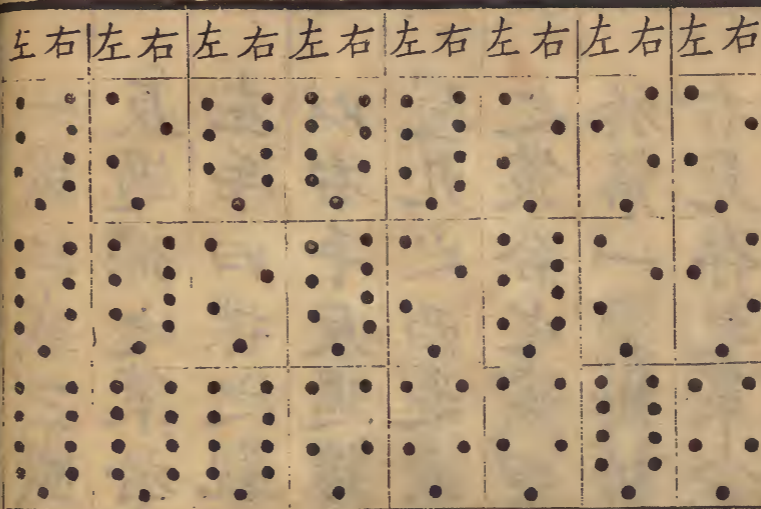 左右左右左右左右左右左右左右左右